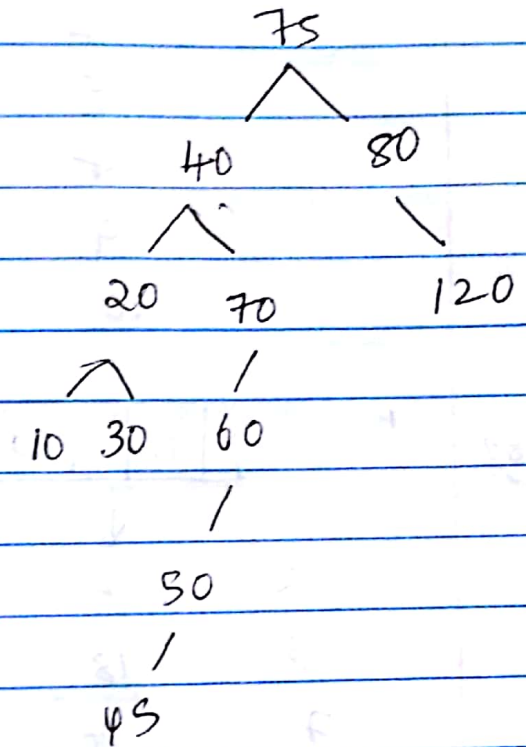 75
40 80
20 70 120
10 30 60
50
45